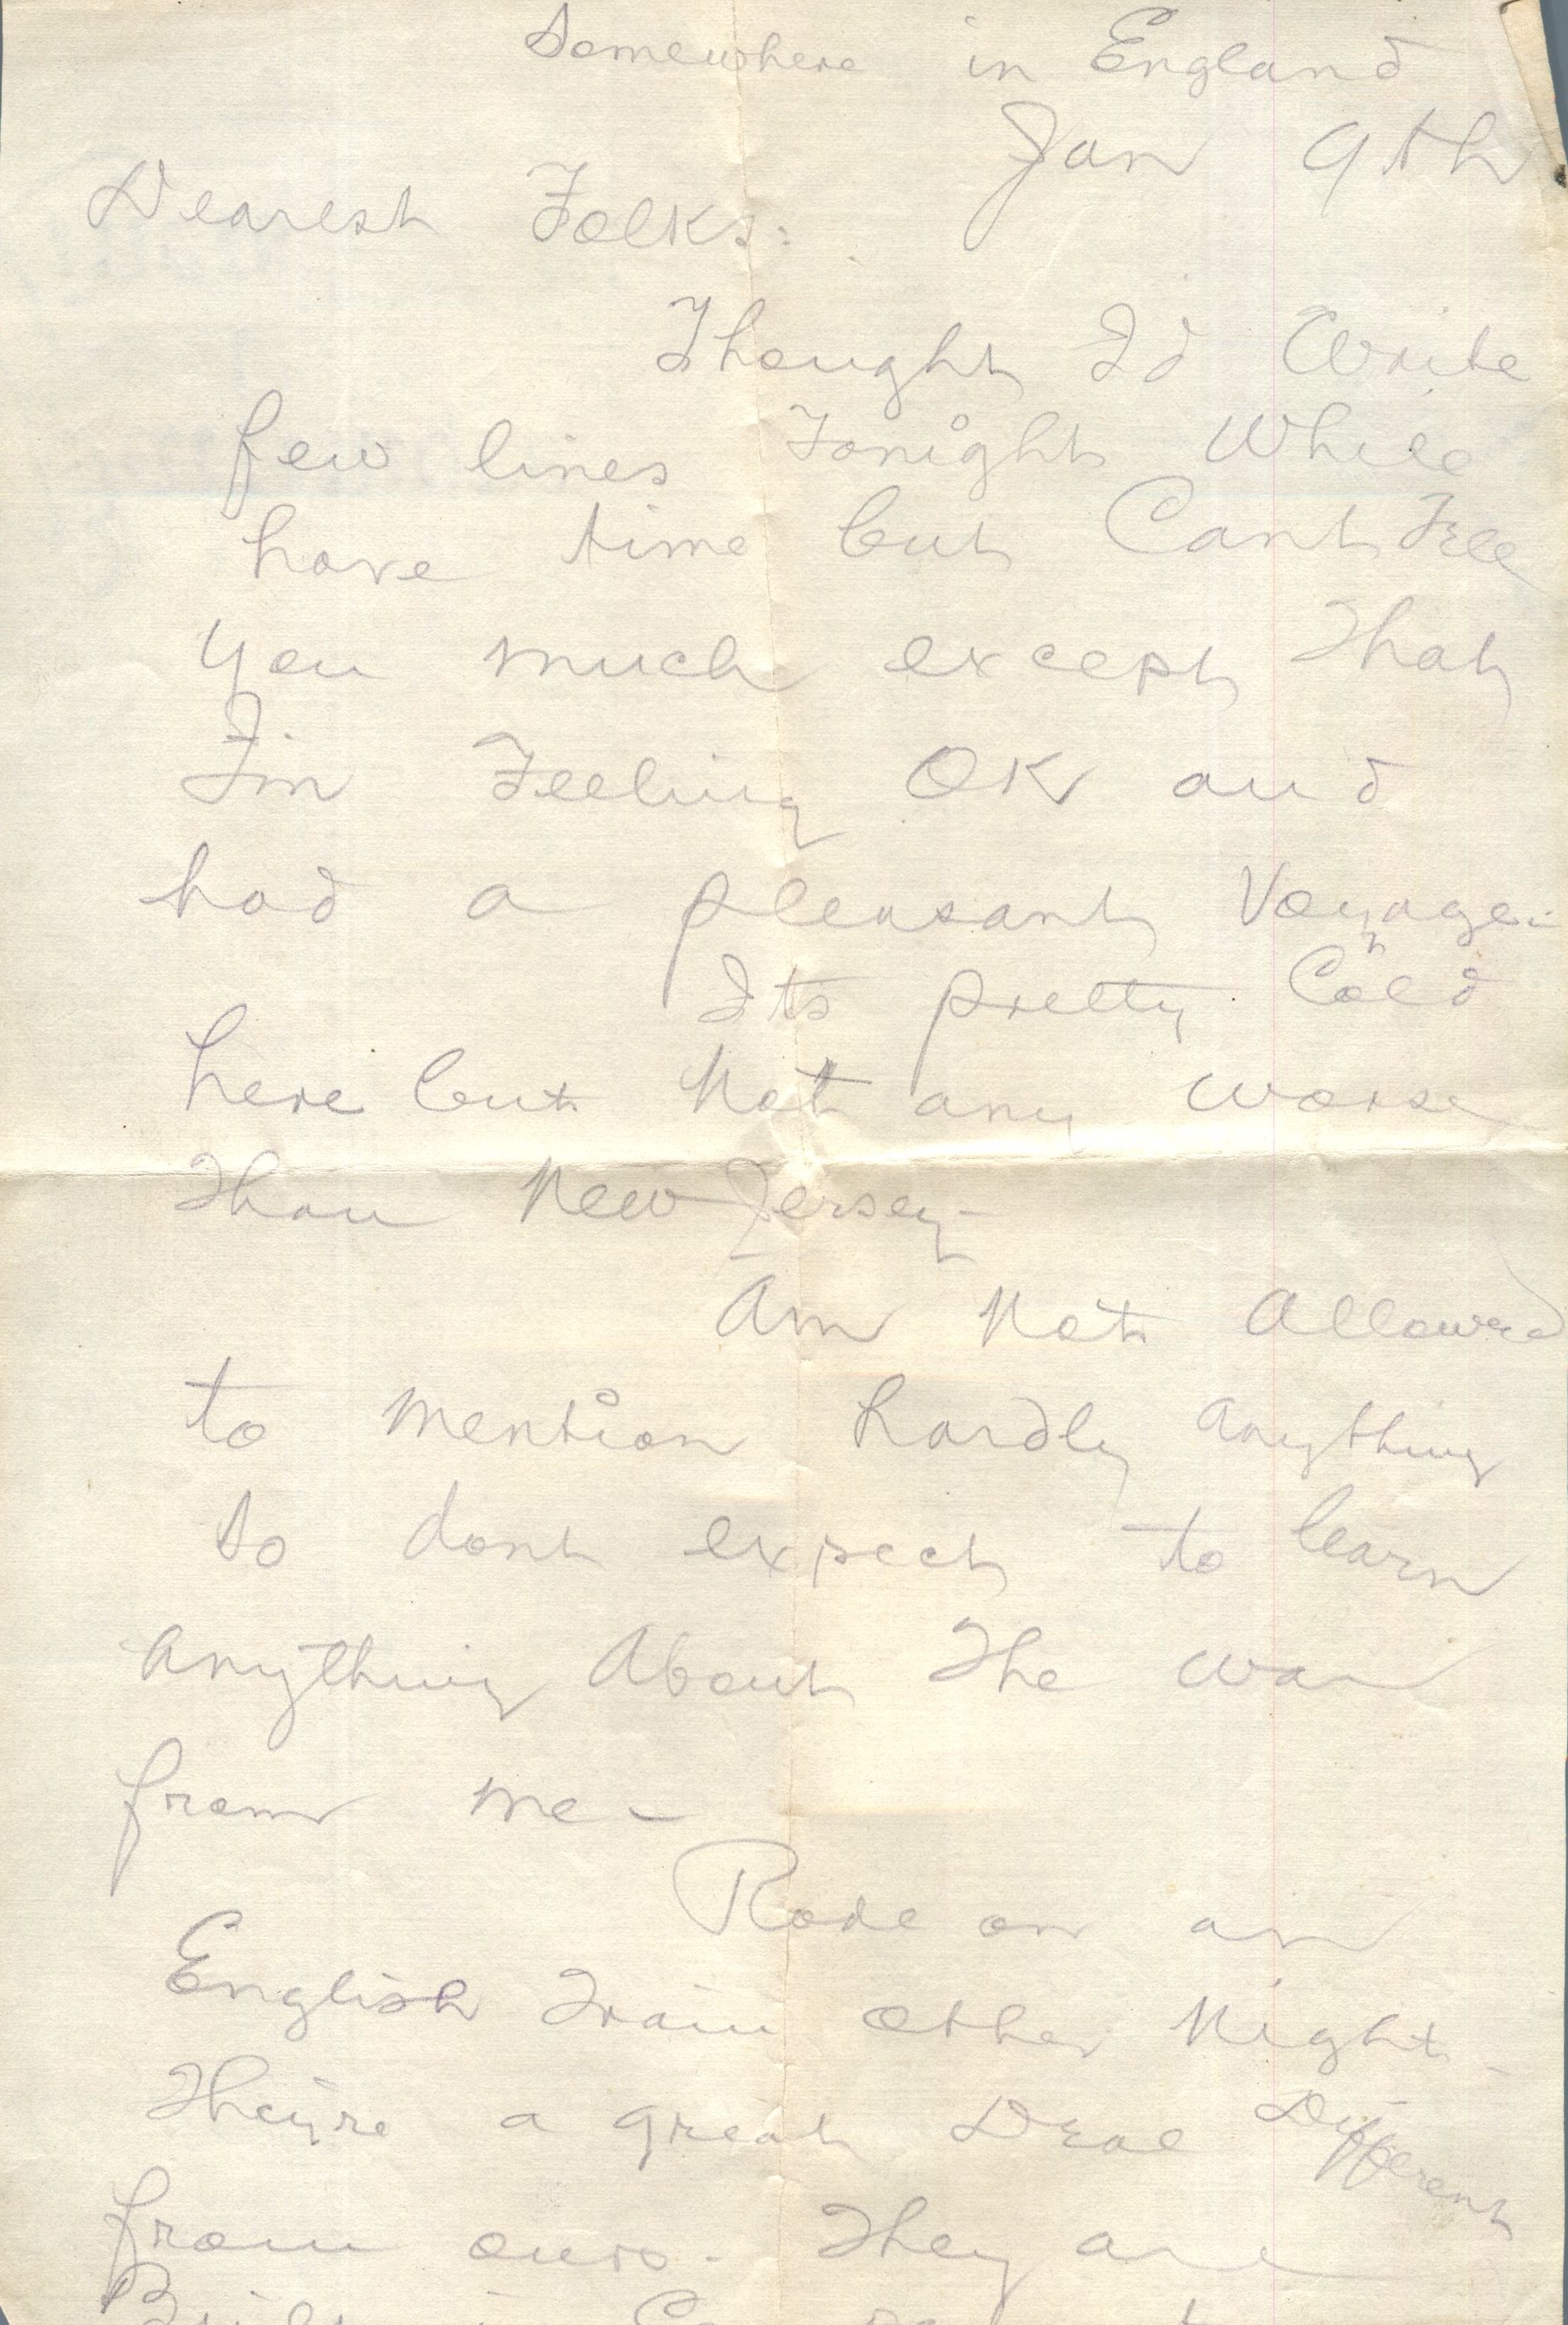 Somewhere in England
Jan 9th
Dearest Folks:
Thought I'd Write
few lines Tonight While
have time but Cant Tell
you much except That
I'm Feeling OK and
had a pleasant Voyage-
Its pretty Cold
here but Not any worse
Than New Jersey-
Am Not Allowed
to Mention hardly anything
So dont expect to learn
Anything About The war
from Me-
Rode on an
English Train other Night-
They're a great Deal Different
from ours- They are
Built in